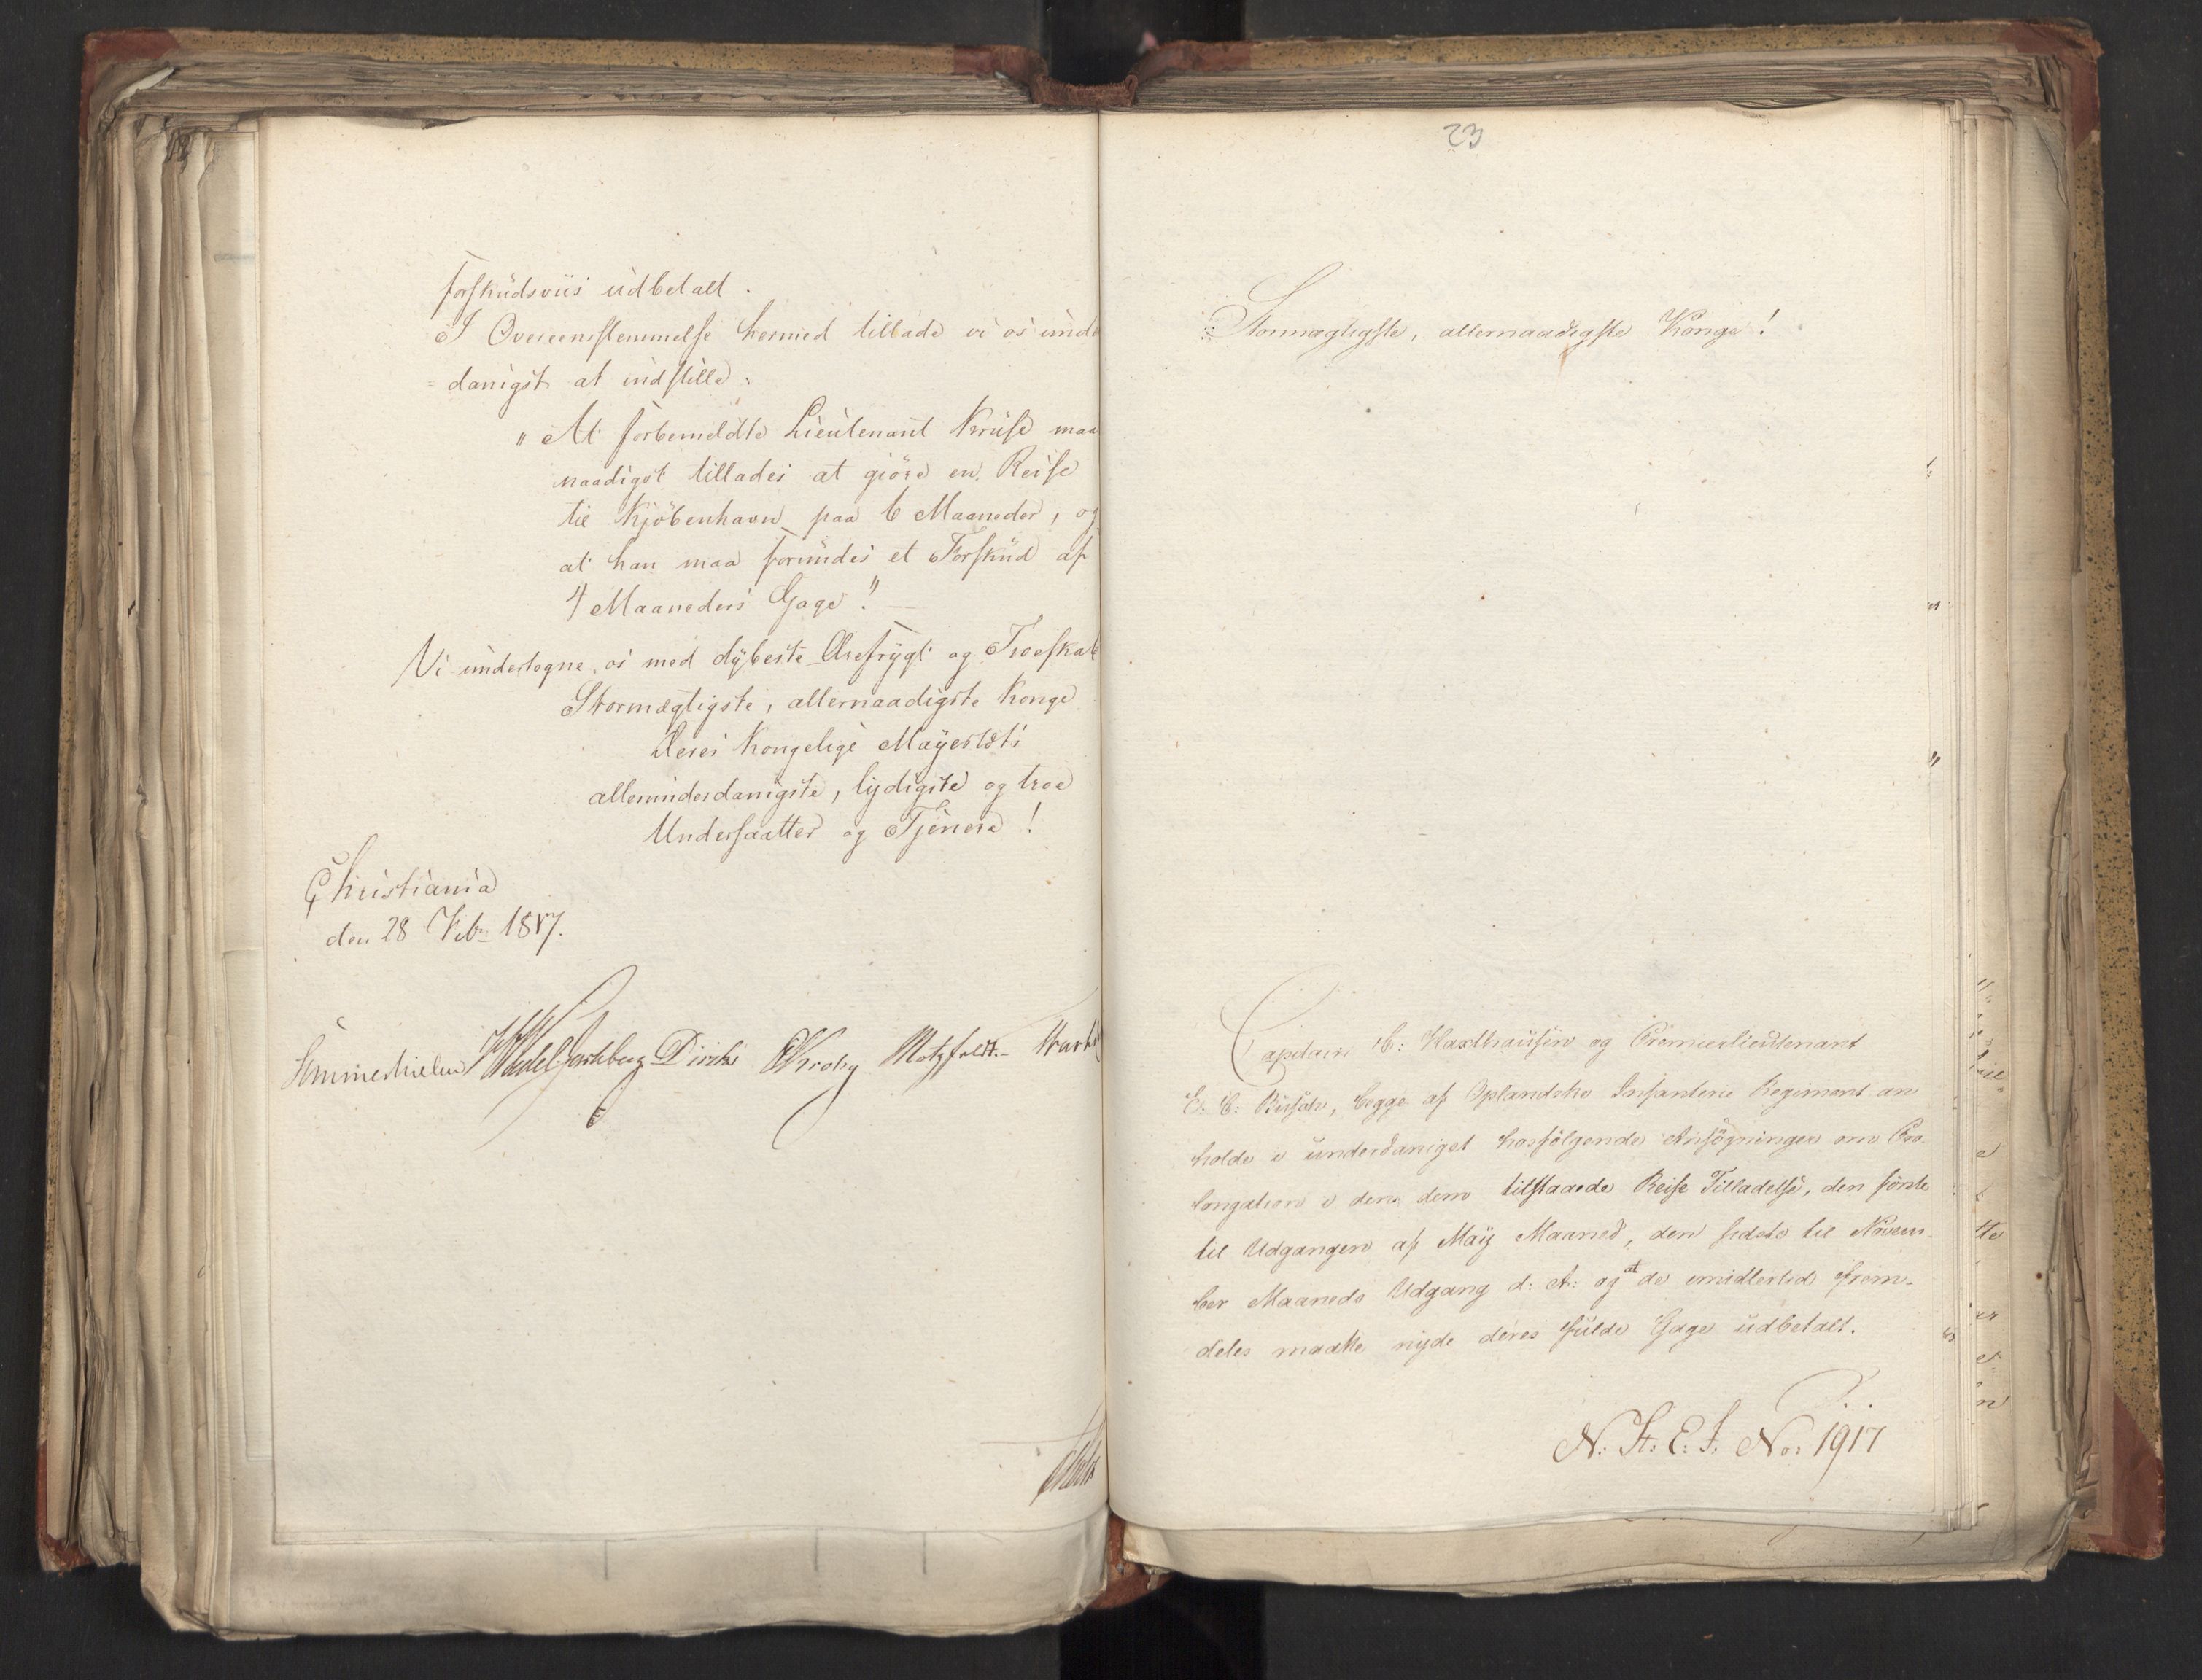 forskudsviis udbetalt.
I Overeensstemmelse hermed tillade vi os und
danigst at indstille:
"At forbemeldte Lieutenant Kruse maa
naadigst tillades at giöre en Reise
til Kjöbenhavn paa 6 Maaneder, og
at han maa forundes et Forskud af
4 Maaneders Gage!"
Vi undertegne os med dÿbeste Ærefrÿgt og Troeskab
Stormægtigste, allernaadigste Konge
Deres Kongelige Mayestæts
allerunderdanigste, lydigste og troe
Undersaatter og Tjenere!
Christiania
den 28 Feb: 1817.
Sommerhielm Wedel Jarlsberg Diriks CKrohg Motzfeldt
23
Stormægtigste, allernaadigste Konge!
Capitain C: Haxthausen og Premierlieutenant
E: C: begge af Oplandske Infanterie Regiment an
holde i underdanigst hosfölgende Ansögninger om Pro
longation i den dem tilstaaede Reise Tilladelse, den förste
til Udgangen af Maÿ Maaned, den sidste til Novem
ber Maaneds Udgang d: A: og at de imidlertid frem-
deles maatte nyde deres fulde Gage udbetalt.
N: St: E: J: No: 1917